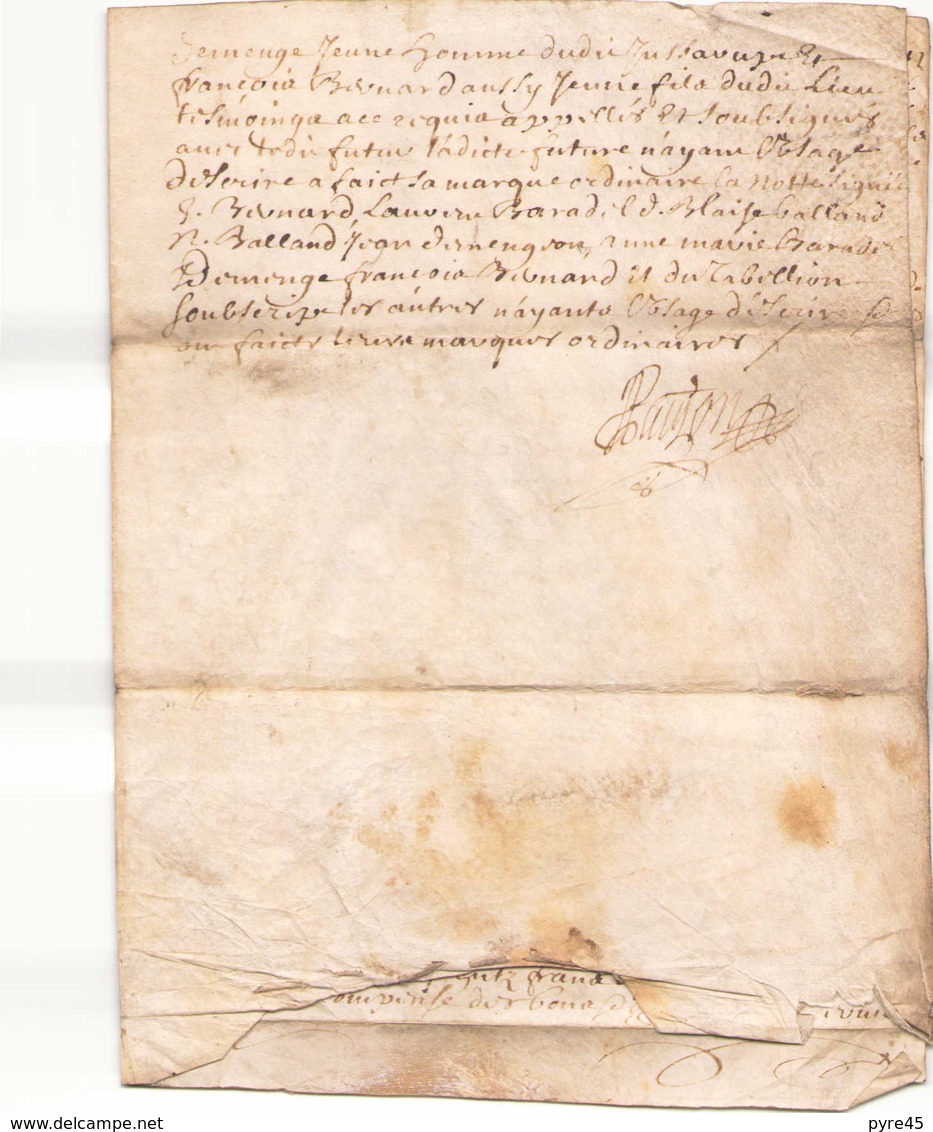 demenge Jeune homme dudit Jussarupt Et
françois Bernard aussy Jeune fils dudit Lieu
tesmoings ace requis appellés Et soubsignés
avec ledit futur ladicte future n'ayant l'Usage
d'escrire a faict sa marque ordinaire la Notte signée
Bernard Laurent Baradel d. Blaise balland
N. Balland Jean demengeon, anne marie Baradel
Demenge françois Bernard et du Tabellion
soubscript les autres n'ayants l'Usage d'escrire
ont faicts leurs marques ordinaires
frans
des bons
www.delcampe.net
pyre45